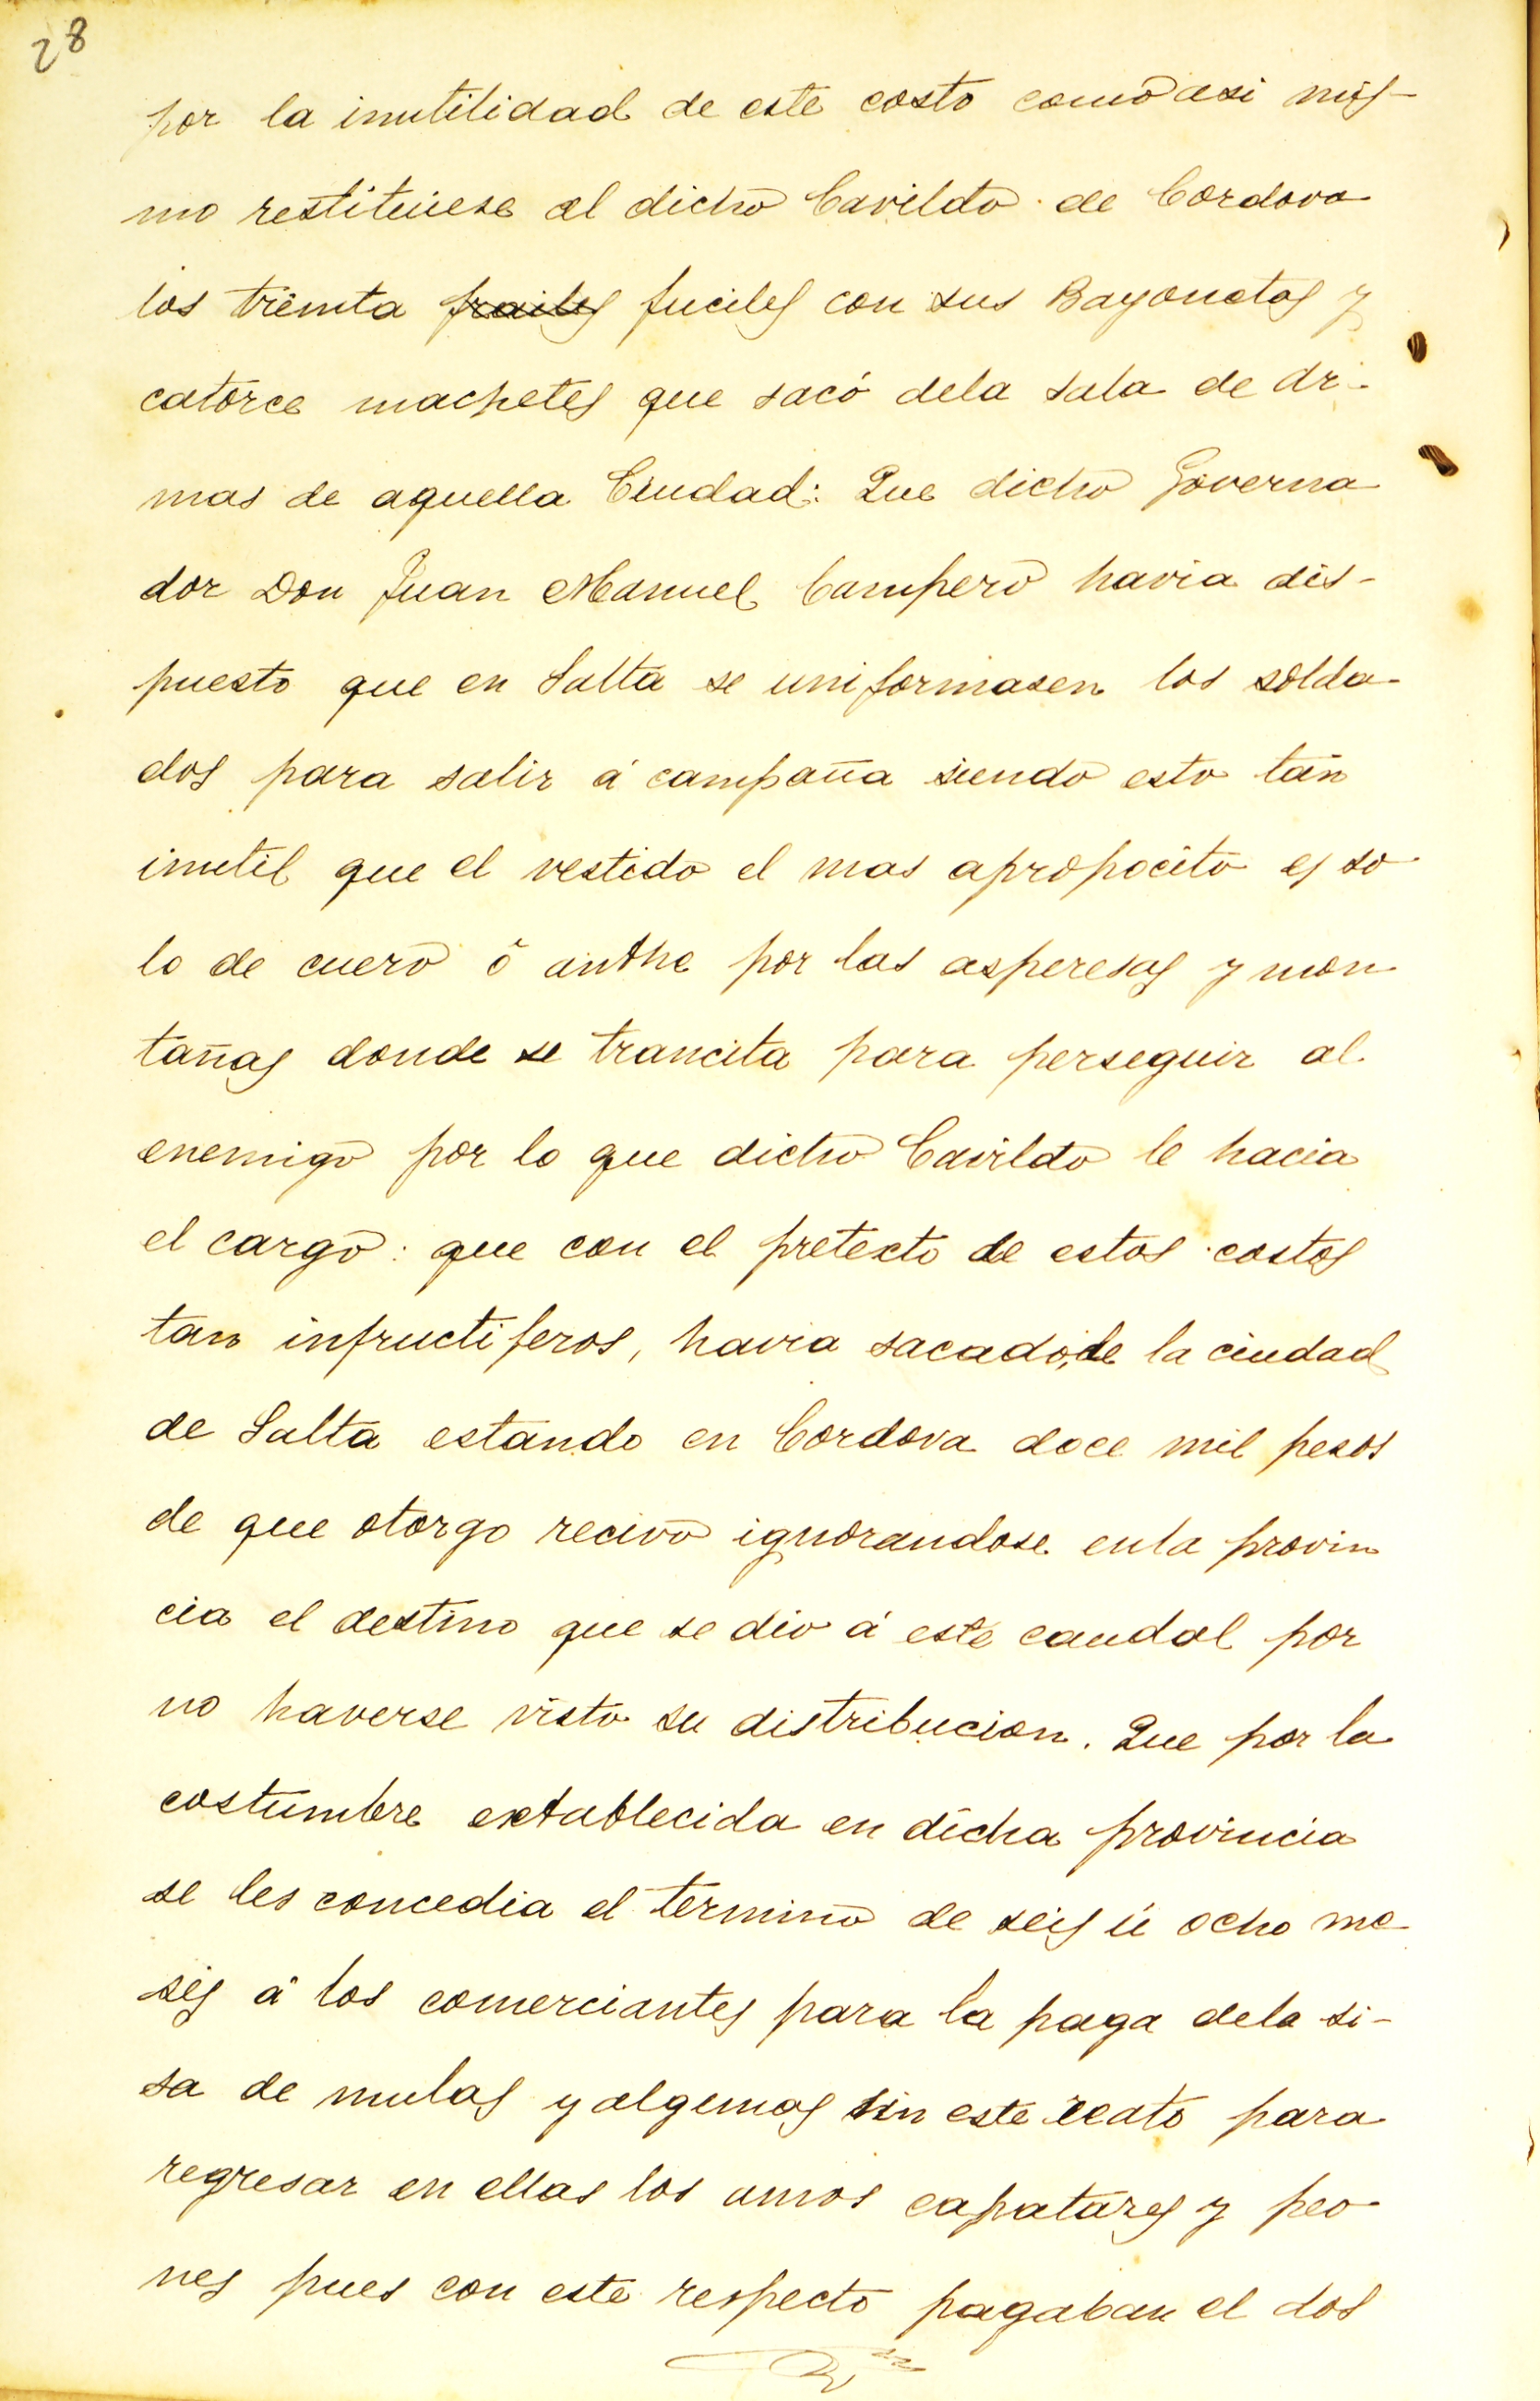 28
por la inutilidad de este costo como asi mis-
mo restituiese al dicho Cavildo de Cordova
los treinta frailes fuciles con sus Bayonetas y
catorce machetes que sacó dela sala de Ar-
mas de aquella Ciudad: Que dicho Governa
dor Don Juan Manuel Campero havia dis-
puesto que en Salta se uniformasen los solda-
dos para salir á campaña siendo esto tan
inutil que el vestido el mas apropocito es so
lo de cuero ó anthe por las asperesas y mon
tañas donde se trancita para perseguir al
enemigo por lo que dicho Cavildo le hacia
el cargo: que con el pretexto de estos costos
tan infructiferos, havia sacado, de la ciudad
de Salta estando en Cordova doce mil pesos
de que otorgo recivo ignorandose enla provin
cia el destino que se dio á este caudal por
no haverse visto su distribucion. Que por la
costumbre establecida en dicha provincia
se les concedia el termino de seis ú ocho me-
ses á los comerciantes para la paga dela si-
sa de mulas y algunas sin este reato para
regresar en ellas los amos capatares y peo
nes pues con este respecto pagaban el dos